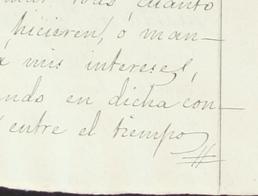 todo cuanto
hicieren, ó man-
mis intereses,
ando en dicha con-
entre el tiempo